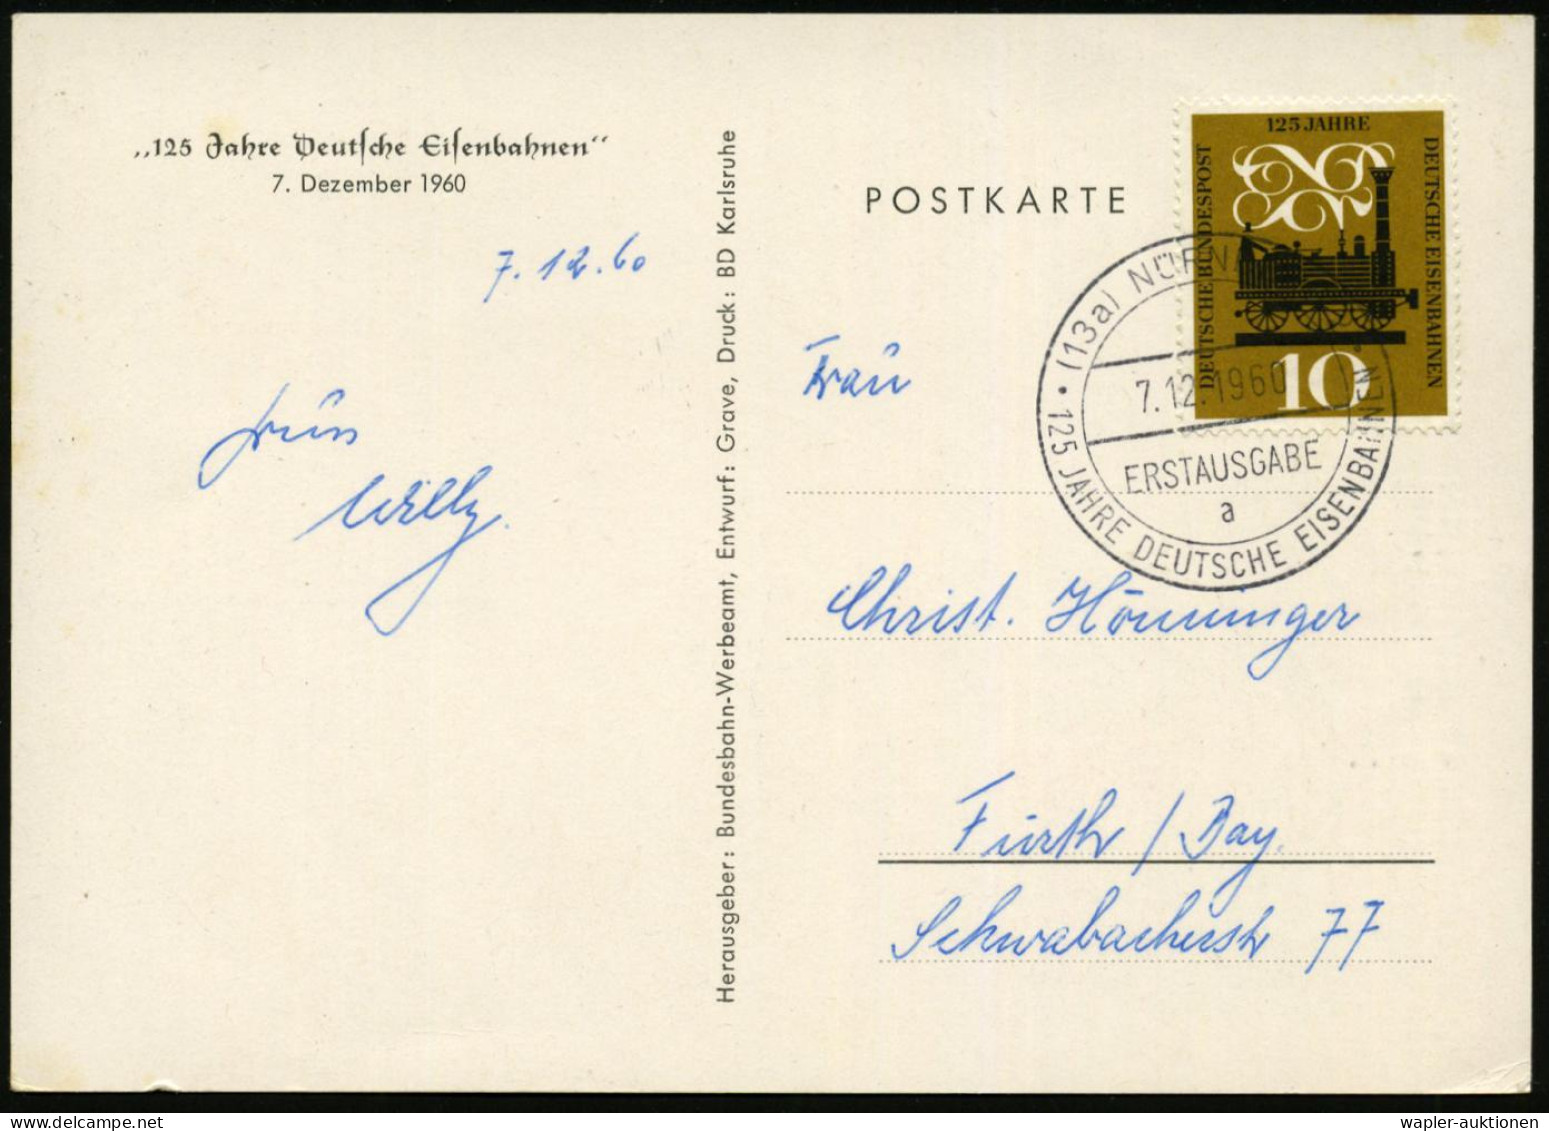 „125 Jahre Deutsche Eisenbahnen“
7. Dezember 1960
7. 12. 60
Willy.
Herausgeber: Bundesbahn-Werbeamt, Entwurf: Grave, Druck: BD Karlsruhe
POSTKARTE
125 JAHRE
DEUTSCHE EISENBAHNEN
DEUTSCHE BUNDESPOST
10
(13a) NÜRN
7.12.1960
ERSTAUSGABE
a
• 125 JAHRE DEUTSCHE EISENBAHNEN •
Frau
Christ. Hönninger
Fürth / Bay.
Schwabacherstr 77
wapler-auktionen